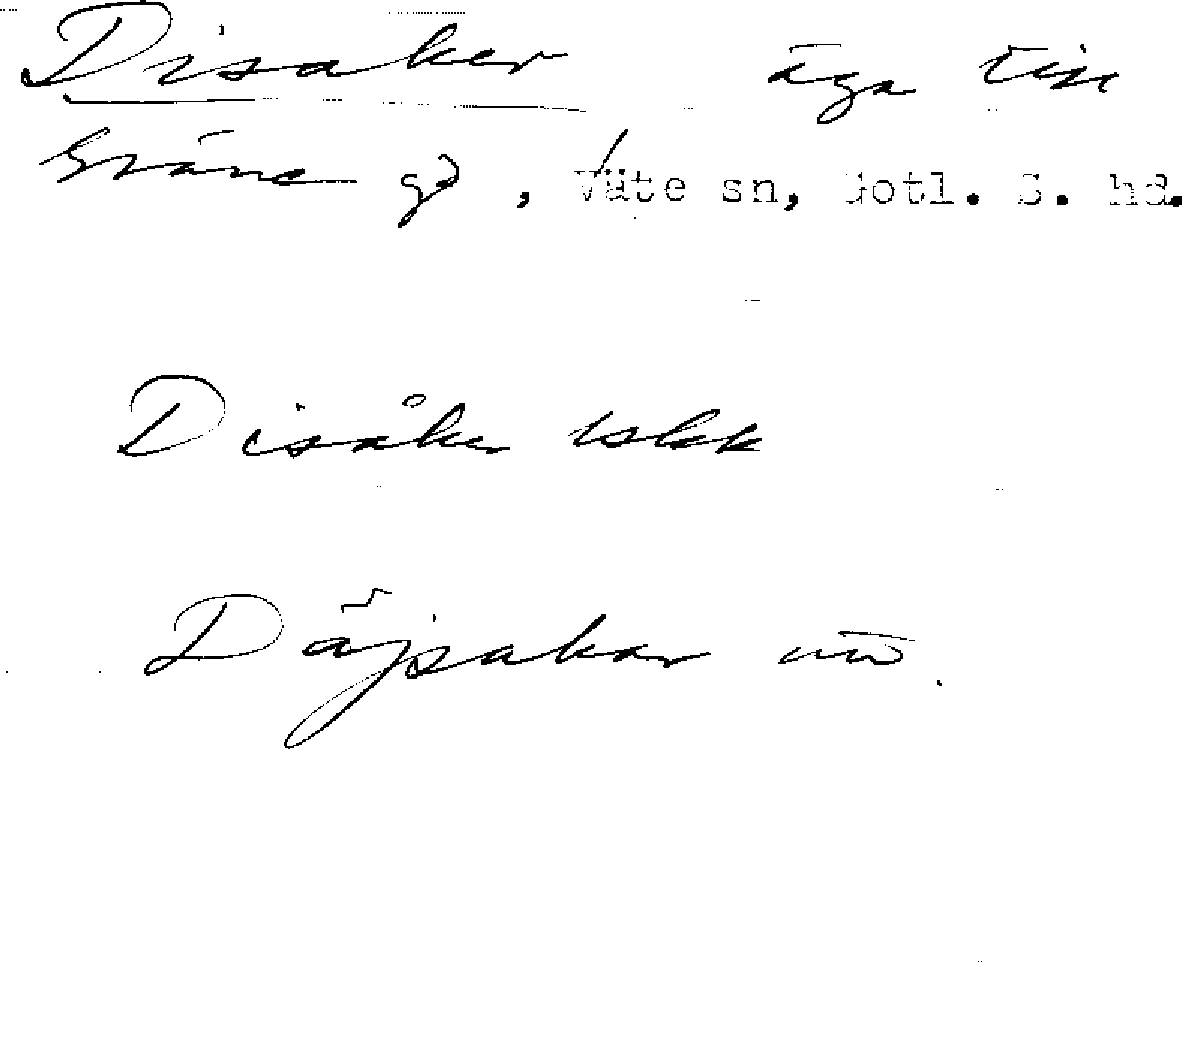 Disaker äga till
Gräne gd, Väte sn, Gotl. S. hd.
Disåker lskk
Däjsakar